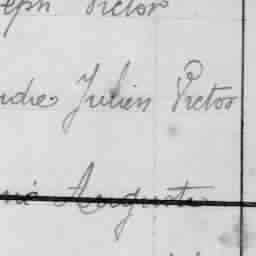 eph Victor
ndre Julien Victor
rie Auguste